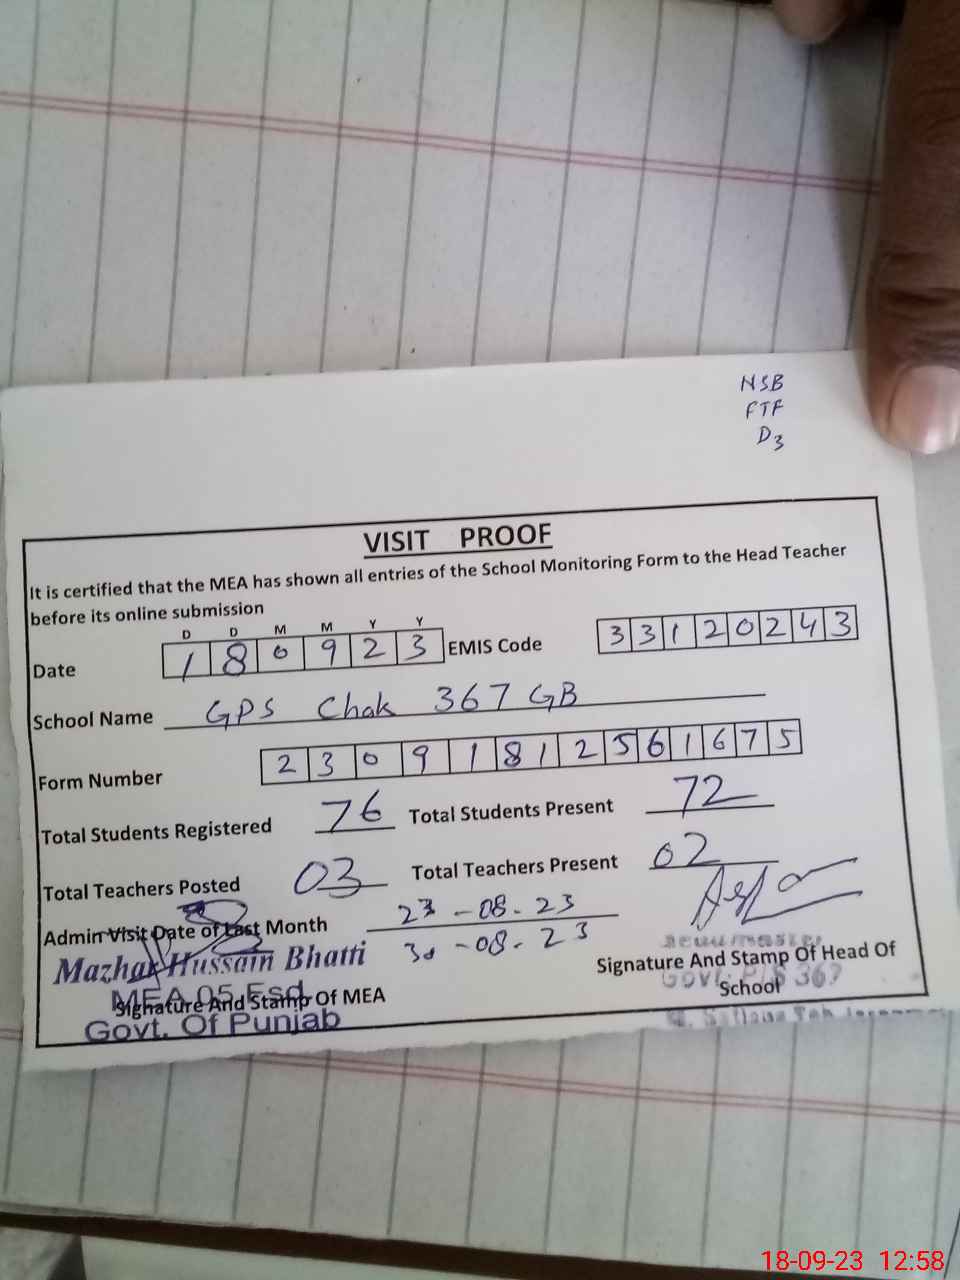 NSB
FTF
D3
VISIT PROOF
It is certified that the MEA has shown all entries of the School Monitoring Form to the Head Teacher
before its online submission
D D M M Y Y
Date 1 8 0 9 2 3 EMIS Code 3 3 1 2 0 2 4 3
School Name GPS Chak 367 GB
Form Number 2 3 0 9 1 8 1 2 5 6 1 6 7 5
Total Students Registered 76 Total Students Present 72
Total Teachers Posted 03 Total Teachers Present 02
Admin Visit Date of Last Month 23-08-23
30-08-23
Mazhar Hussain Bhatti
MEA 05 Fsd
Signature And Stamp Of MEA
Govt. Of Punjab
Signature And Stamp Of Head Of
School
Govt. P/S 367
18-09-23 12:58